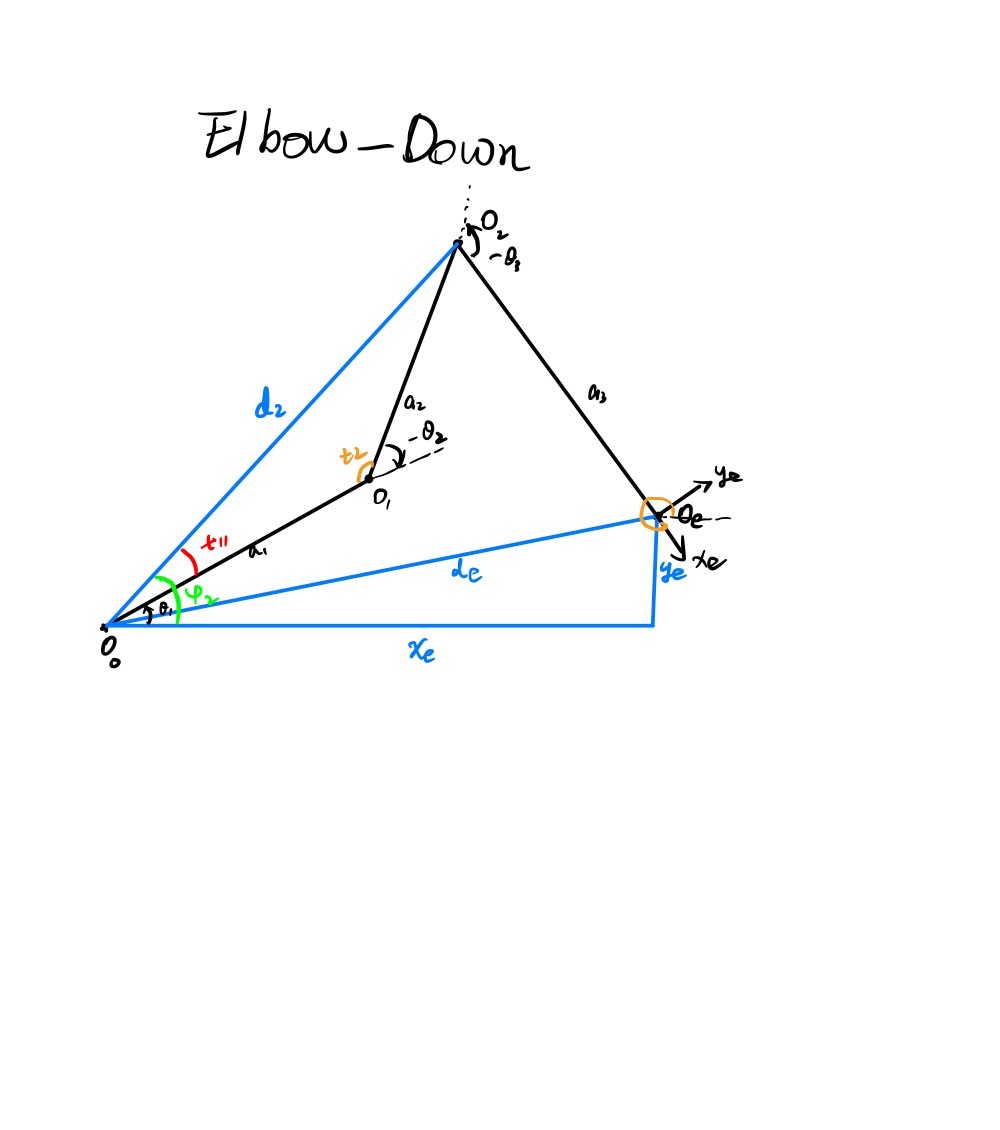 Elbow-Down
O₂
-θ₃
d₂
a₂
a₃
-θ₂
t2
O₁
ye
θe
xe
t11
a₁
de
ye
φ₂
θ₁
O₀
xe